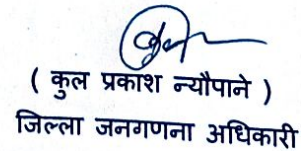 ( कुल प्रकाश न्यौपाने )
जिल्ला जनगणना अधिकारी